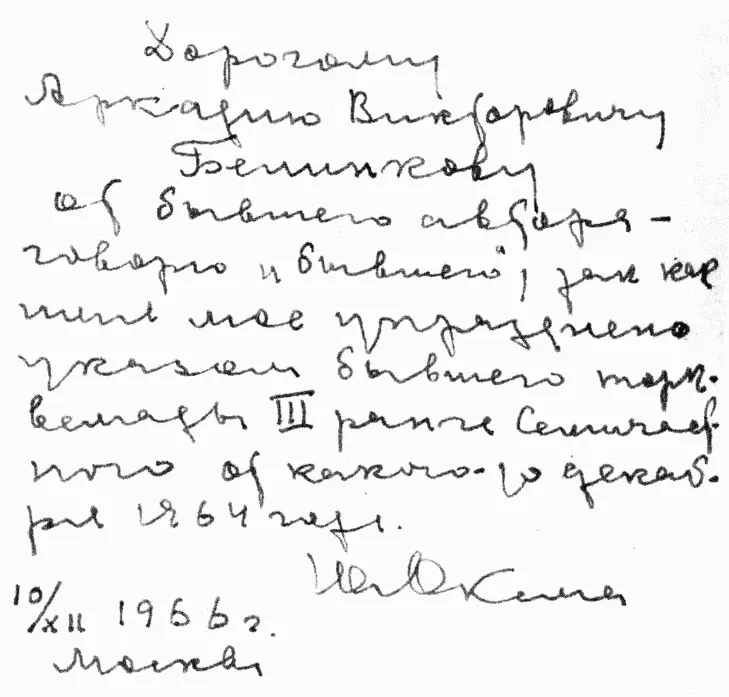 Дорогому
Аркадию Викторовичу
Белинкову
от бывшего автора –
говорю „бывшего", так как
имя мое упразднено
указом бывшего торк-
вемады III ранга Семичаст-
ного от какого-то декаб-
ря 1964 года.
10/XII 1966 г.
Москва